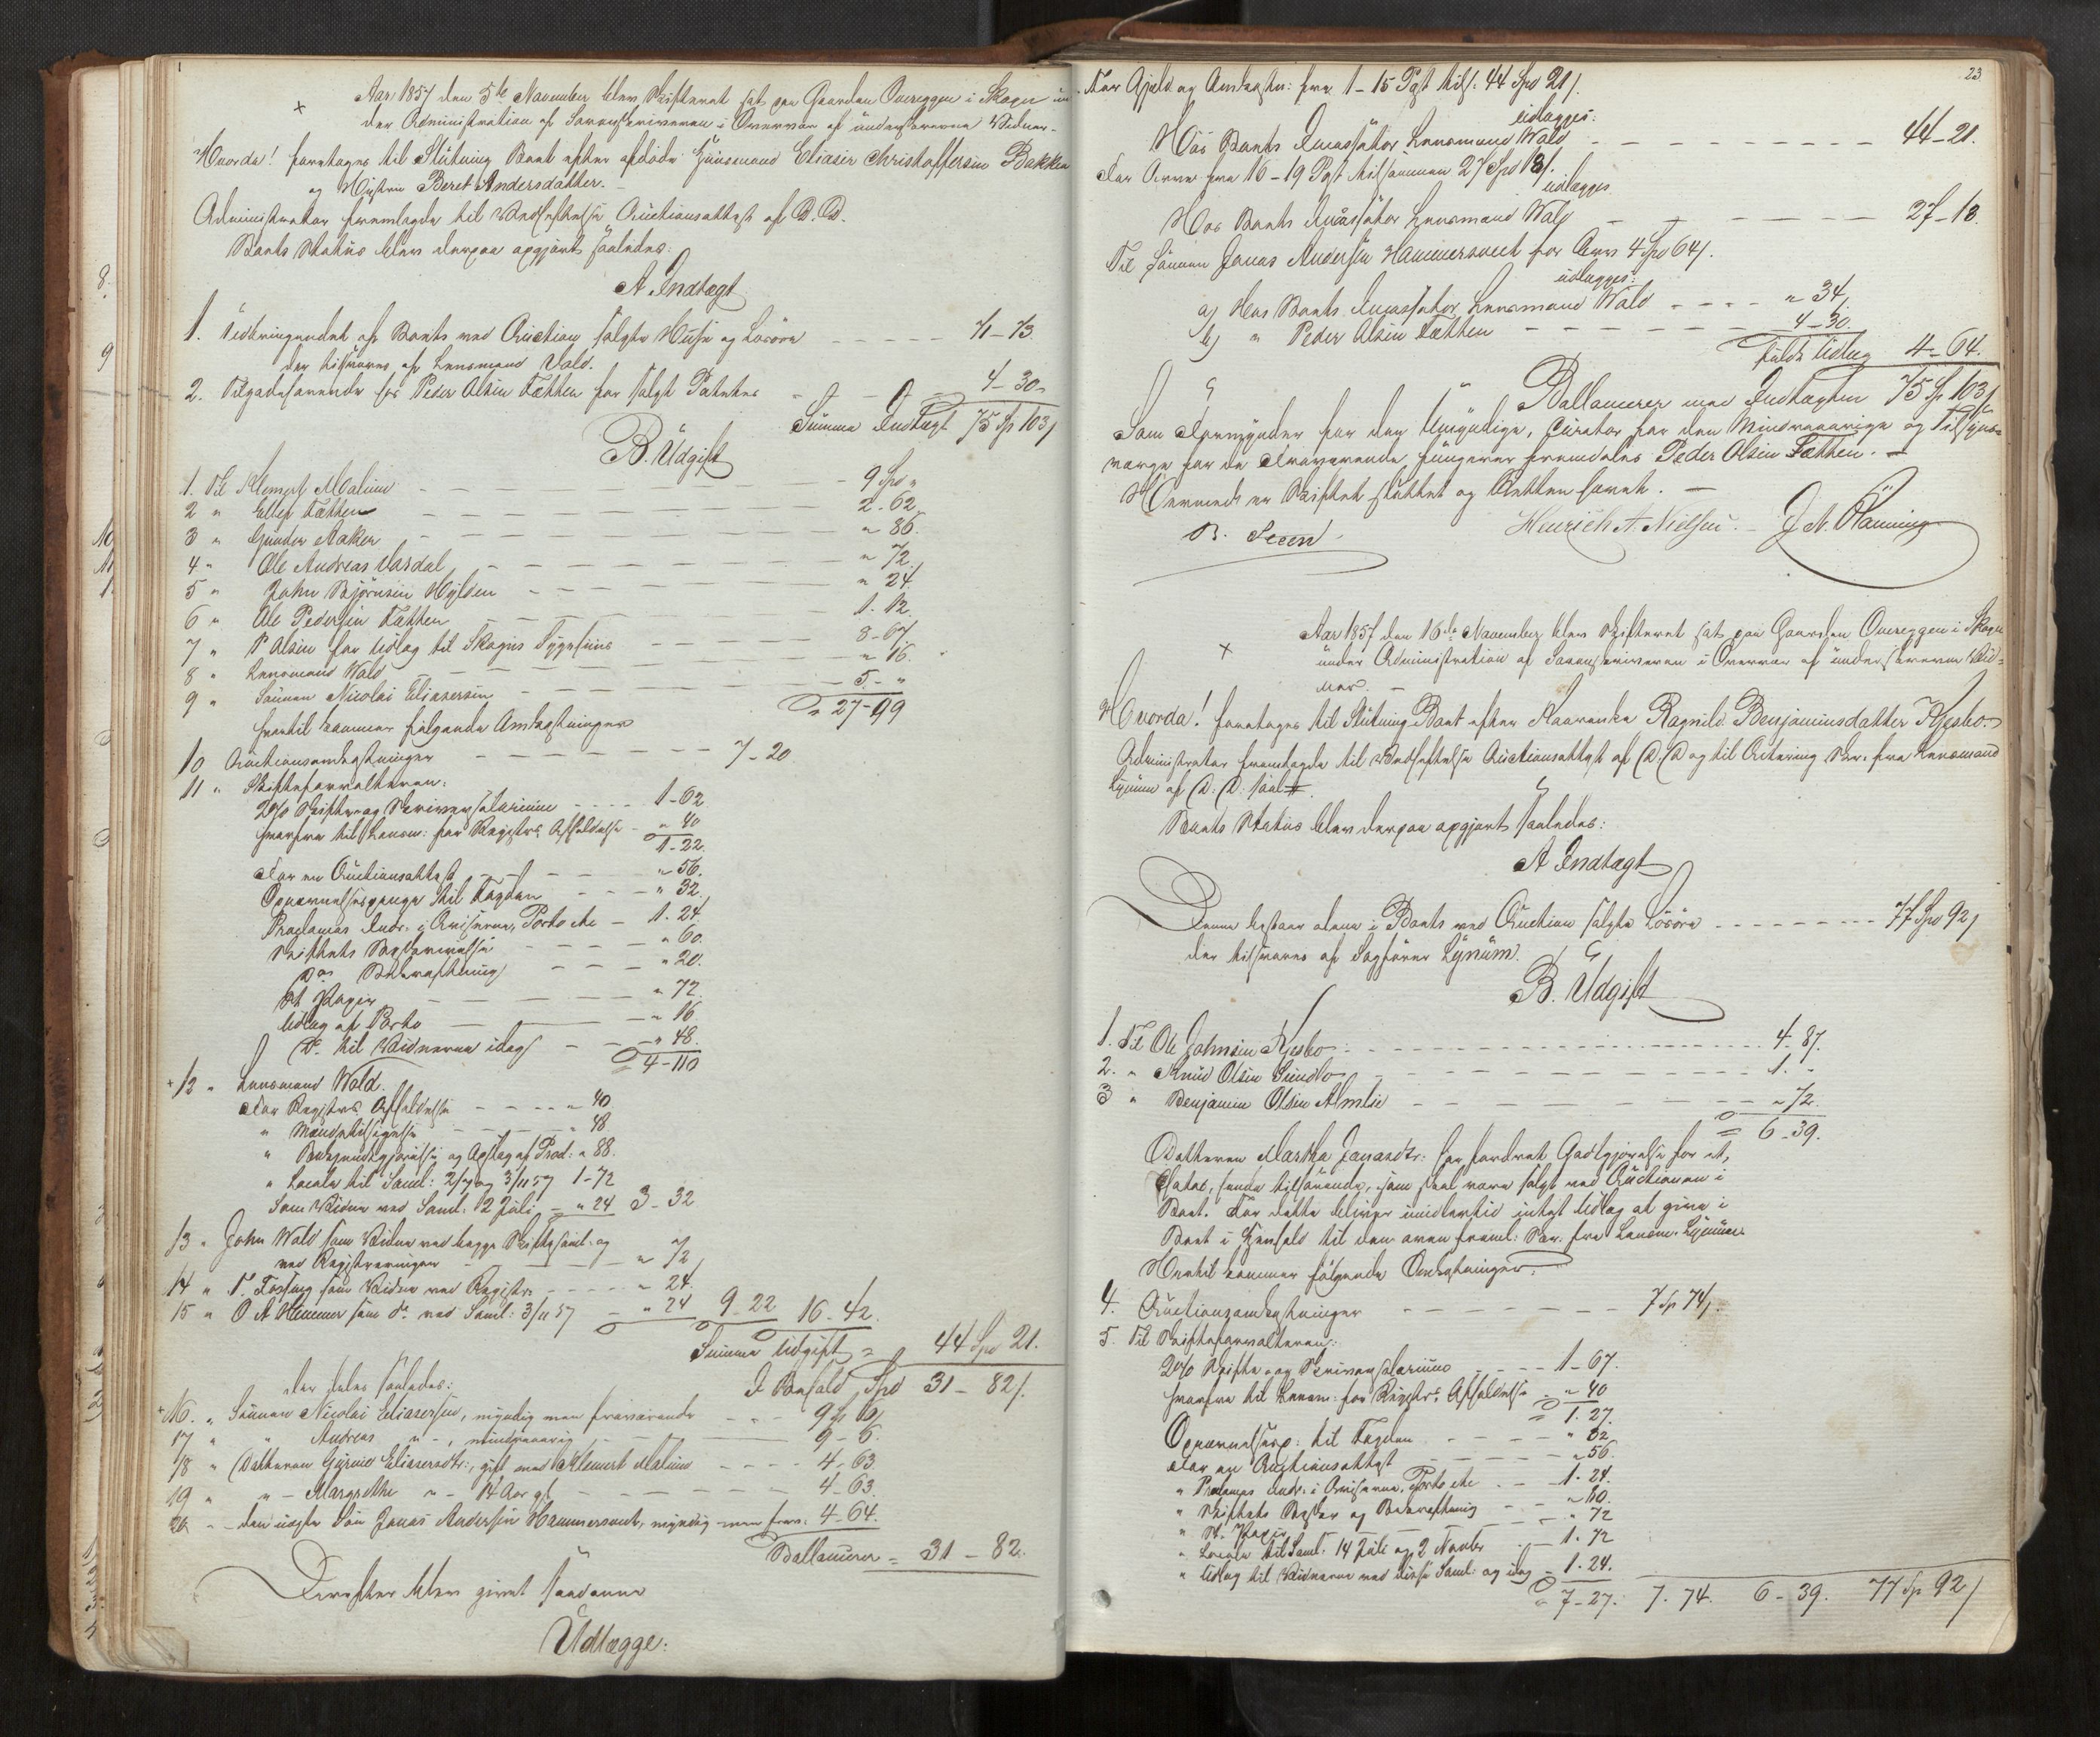 Aar 1857 den 5te November blev Skifteret sat paa Gaarden Overeggen i Skogn un-
der Administration af Sorenskriveren i Overvær af underskrevne Vidner.
Hvorda! foretages til Slutning Boet efter afdøde Huusmand Eliasir Christoffersen Bakken
og Hustru Beret Andersdatter.
Administrator fremlagde til Vedheftelse Auctionsattest af D.D.
Boets Status blev derpaa opgjort saaledes:
A Indtægt
1. Udbringendet af Boets ved Auction solgte Huse og Løsøre 71-73
der tilsvares af Lensmand Wald.
2. Tilgodehavende hos Peder Olsen Tætten for solgt Poteter 4-30
Summa Indtægt 75 Sp 103 /
B. Udgift
1. Til Klemet Malino 9 Spd "
2 " Ellef Tætten 2.62.
3 " Gunder Aaker " 86.
4 " Ole Andreas Aasdal " 72.
5 " John Bjørnsen Hylden " 24.
6 " Ole Pedersen Tætten 1.12.
7 " P Olsen for Udlæg til Skogns Sygehuus 8-67.
8 " Lensmand Wald " 16.
9 " Sønnen Nicolai Eliasersen 5 - "
27-99
hvortil kommer følgende Omkostninger
10 Auctionsomkostninger 7-20
11 " Skifteforvalteren:
2% Skifte- og Skriversalarium 1-62.
hvorfra til Lensm: for Registrs Afholdelse " 40
1-22.
For en Auctionsattest " 56.
Opnævnelsespenge til Fogden " 32.
Proclamas Indr. i Aviserne, Porto etc 1.24.
Skiftets Beskrivelse " 60.
Do Bekræftning " 20.
St Papir " 72.
Udlæg af Porto " 16
Do til Vidnerne idag " 48.
4-110
12 " Lensmand Wald.
For Registrs Afholdelse " 40
" Mændstilsigelse " 48
" Bekjendtgjørelse og Opslag af Procl: " 88.
" Locale til Saml: 2/7 og 3/11 57 1-72
Som Vidne ved Saml: 2 Juli " 24 3-32
13 " John Wald som Vidne ved begge Skiftesaml: og
ved Registreringen " 72
14 " som Vidne ved Registr: " 24.
15 " O A Hemmer som do ved Saml: 3/11 57 " 24 9-22 16-42.
Summa Udgift = 44 Spd 21.
I Behold Spd 31-82 /.
der deles saaledes:
16. " Sønnen Nicolai Eliasersen, myndig men fraværende 9 Sp 6 /
17 " " Andreas " - , mindreaarig 9-6.
18 " Datteren Gurine Eliasersdtr:, gift med Klemet Malino 4-63
19 " " - Margrethe " - 14 Aar gl 4-63.
20 " - den uægte Søn Jonas Andersen Hammersvet, myndig men frav: 4-64.
Ballancerer = 31-82.
Derefter blev gjort saadanne
Udlægge:
23
For Gjeld og Omkostn: fra 1-15 Post tils: 44 Spd 21 /.
udlægges:
Hos Boets Incassator Lensmand Wald 44-21.
For Arven fra 16-19 Post tilsammen 27 Spd 18 /.
udlægges
Hos Boets Incassator Lensmand Wald 27-18.
Til Sønnen Jonas Andersen Hammersvet for Arv 4 Spd 64 /.
udlægges:
a) Hos Boets Incassator Lensmand Wald " 34
b) " Peder Olsen Tætten 4-30.
fuldt Udlæg 4-64.
Ballancerer med Indtægten 75 Sp 103 /
Som Formynder for den Umyndige, Curator for den Mindreaarige og Tilsyns-
værge for de Fraværende fungerer fremdeles Peder Olsen Tætten.
Hermed er Skiftet sluttet og Retten hævet.
Henrich A. Nielsen
Aar 1857 den 16de November blev Skifteret sat paa Gaarden Overeggen i Skogn
under Administration af Sorenskriveren i Overvær af underskrevne Vid-
ner.
Hvorda! foretages til Slutning Boet efter Kaarenke Ragnild Benjaminsdatter Kjesbo.
Administrator fremlagde til Vedheftelse Auctionsattest af D:D og til Acttering Skr. fra Lensmand
Lynum af D: D: saal.
Boets Status blev derpaa opgjort saaledes:
A Indtægt
Denne bestaar alene i Boets ved Auction solgte Løsøre 77 Spd 92 /
der tilsvares af Sagfører Lynum.
B. Udgift
1. Til Ole Johnsen Kjesbo 4.87.
2. " Knud Olsen Sundbo 1. "
3 " Benjamin Olsen Almlie " 72.
6-39.
Datteren Martha Jonasdtr: har fordret Godtgjørelse for et,
hende tilhørende, som skal være solgt ved Auctionen i
Boet. For dette bliver imidlertid intet Udlæg at give i
Boet i Henhold til den oven freml: Skr. fra Lensm. Lynum.
Hertil kommer følgende Omkostninger.
4. Auctionsomkostninger 7 Sp 74 /.
5. Til Skifteforvalteren:
2% Skifte- og Skriversalarium 1-67.
hvorfra til Lensm: for Registrs Afholdelse " 40
1.27.
Opnævnelsesp: til Fogden " 32
For en Auctionsattest " 56.
" Proclamas Indr. i Aviserne, Porto etc 1.24.
" Skiftets Beskr og Bekræftning " 80.
" St. Papir " 72
" Locale til Saml. 14 Juli og 2 Novbr 1.72
" Udlæg til Vidnerne ved disse Saml: og idag 1.24.
7-27. 7.74. 6-39. 77 Sp 92 /